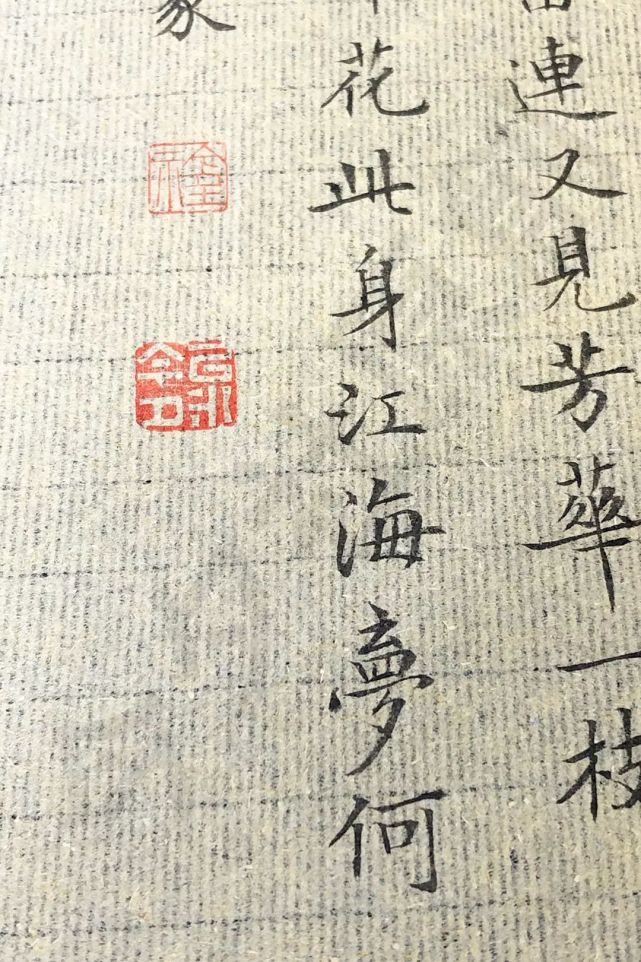 連又見芳華一枝
花此身江海夢何
家